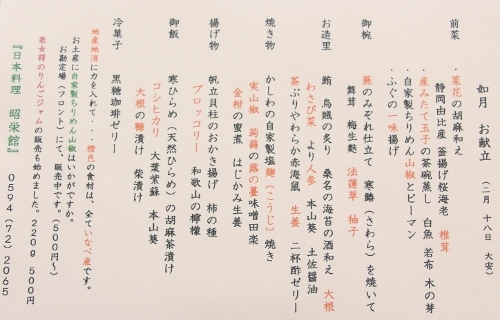 如月 お献立 (二月 十八日 大安)
前菜
・菜花の胡麻和え
静岡由比産 釜揚げ桜海老 椎茸
・産みたて玉子の茶碗蒸し 白魚 若布 木の芽
・自家製ちりめん山椒とピーマン
・ふぐの一味揚げ
御椀
蕪のみぞれ仕立て 寒鰆(さわら)を焼いて
舞茸 梅生麩 法蓮草 柚子
お造里
鮪 烏賊の炙り 桑名の海苔の酒和え 大根
わさび菜 より人参 本山葵 土佐醤油
茶ぶりやわらか赤海鼠 生姜 二杯酢ゼリー
焼き物
かしわの自家製塩麹(こうじ)焼き
実山椒 蒟蒻の蕗の薹味噌田楽
金柑の蜜煮 はじかみ生姜
揚げ物
帆立貝柱のおかき揚げ 柿の種
ブロッコリー 和歌山の檸檬
御飯
寒ひらめ(天然ひらめ)の胡麻茶漬け
コシヒカリ 大葉紫蘇 本山葵
大根の糠漬け 柴漬け
冷菓子
黒糖珈琲ゼリー
地産地消に力を入れて・・・橙色の食材は、全ていなべ産です。
お土産に自家製ちりめん山椒はいかがですか。
お勘定場(フロント)にて、販売中です。(500円~)
若女将のりんごジャムの販売も始めました。220g 500円
『日本料理 昭栄館』 0594(72)2065